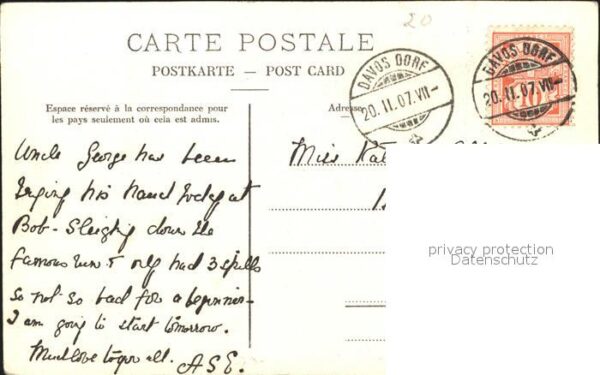 20
CARTE POSTALE
POSTKARTE — POST CARD
DAVOS DORF
20.II.07.VII-
DAVOS DORF
20.II.07.VII-
10
Espace réservé à la correspondance pour
les pays seulement où cela est admis.
Adresse
Uncle George has been
trying his hand today at
Bob-Sleighing down the
famous run & only had 3 spills
so not so bad for a beginner -
I am going to start tomorrow.
Much love to you all.
A S E.
Miss
privacy protection
Datenschutz